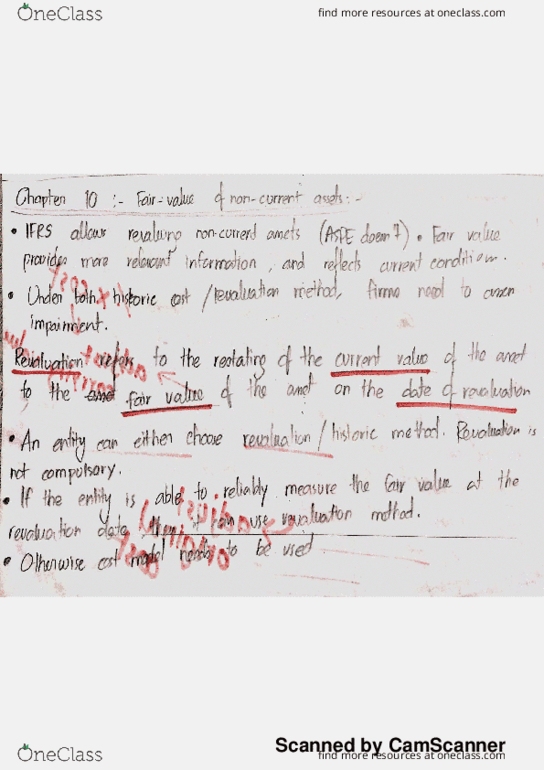 OneClass
find more resources at oneclass.com
Chapter 10 :- Fair-value of non-current assets:-
• IFRS allows revaluing non-current assets (ASPE doesn't) • Fair value
provides more relevant information, and reflects current condition.
• Under both historic cost / revaluation method, firms need to assess
impairment.
Revaluation refers to the restating of the current value of the asset
to the fair value of the asset on the date of revaluation
• An entity can either choose revaluation / historic method. Revaluation is
not compulsory.
• If the entity is able to reliably measure the fair value at the
revaluation date, then it can use revaluation method.
• Otherwise cost model needs to be used
Scanned by CamScanner
OneClass
find more resources at oneclass.com